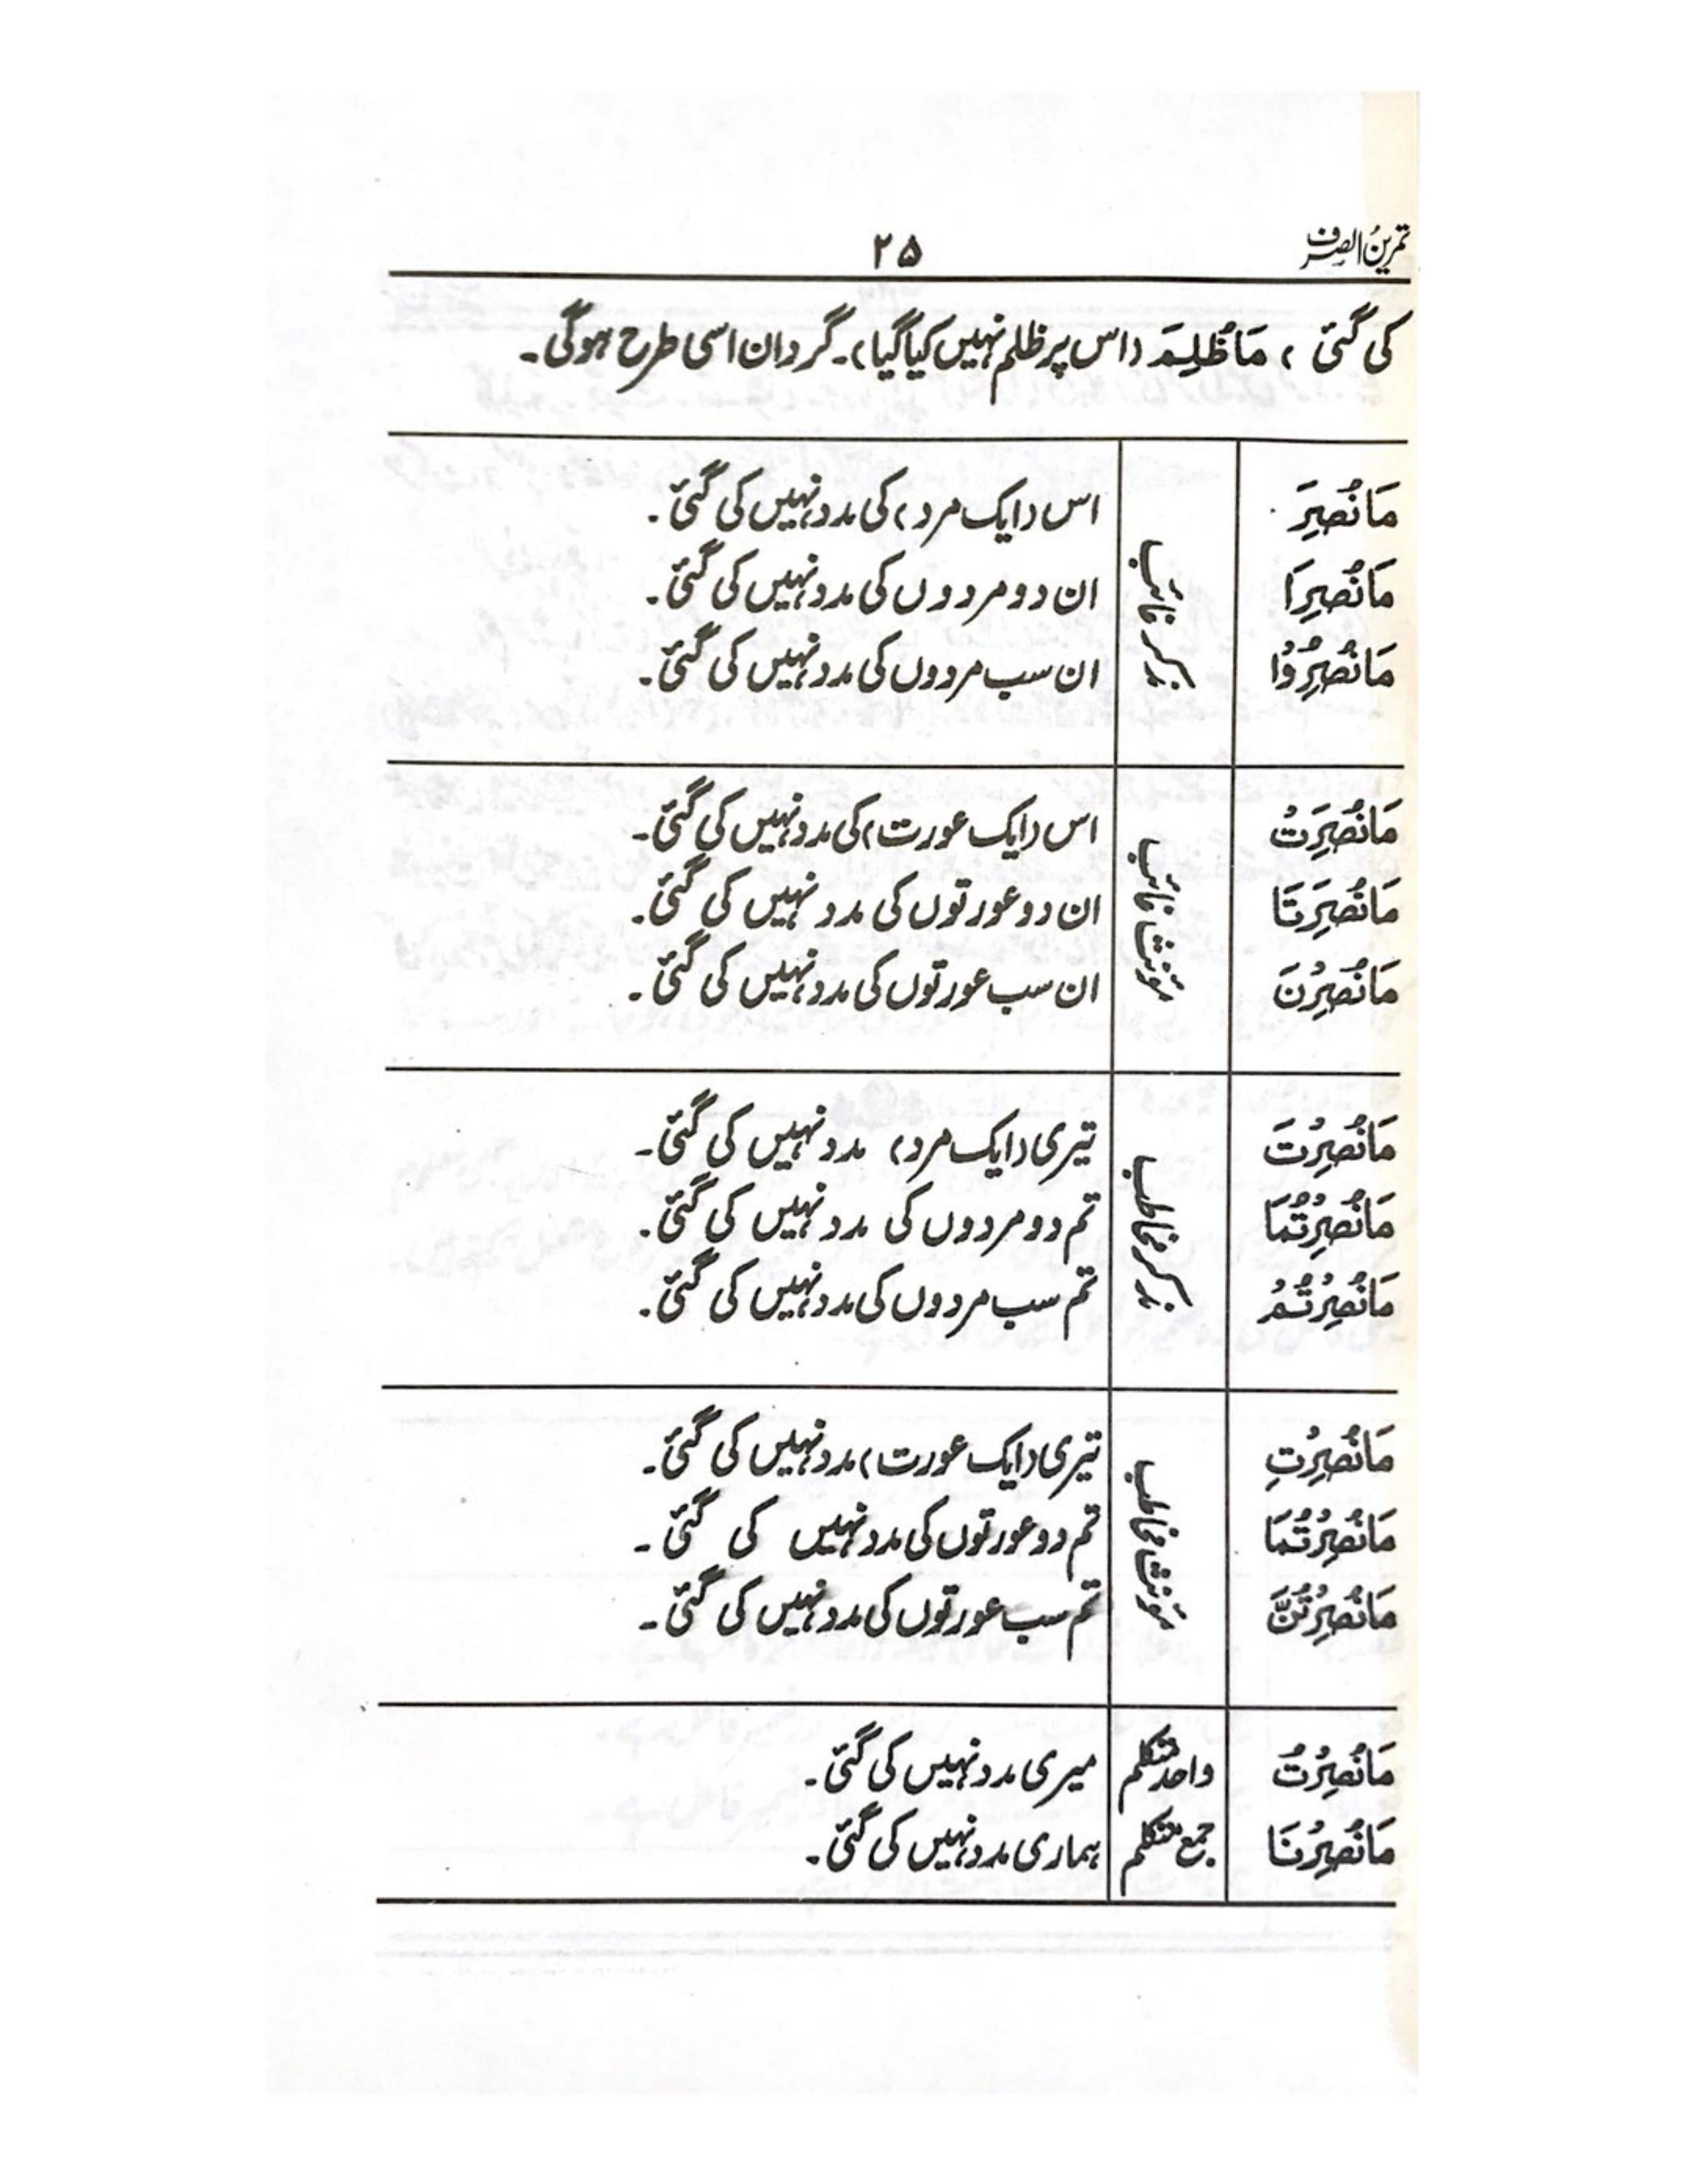 تمرینُ الصرف
۲۵
کی گئی) مَا ظُلِمَ (اس پر ظلم نہیں کیا گیا)۔ گردان اسی طرح ہوگی۔
مَا نُصِرَ مذکر غائب اس (ایک مرد) کی مدد نہیں کی گئی۔
مَا نُصِرَا ان دو مردوں کی مدد نہیں کی گئی۔
مَا نُصِرُوْا ان سب مردوں کی مدد نہیں کی گئی۔
مَا نُصِرَتْ مؤنث غائب اس (ایک عورت) کی مدد نہیں کی گئی۔
مَا نُصِرَتَا ان دو عورتوں کی مدد نہیں کی گئی۔
مَا نُصِرْنَ ان سب عورتوں کی مدد نہیں کی گئی۔
مَا نُصِرْتَ مذکر مخاطب تیری (ایک مرد) مدد نہیں کی گئی۔
مَا نُصِرْتُمَا تم دو مردوں کی مدد نہیں کی گئی۔
مَا نُصِرْتُمْ تم سب مردوں کی مدد نہیں کی گئی۔
مَا نُصِرْتِ مؤنث مخاطب تیری (ایک عورت) مدد نہیں کی گئی۔
مَا نُصِرْتُمَا تم دو عورتوں کی مدد نہیں کی گئی۔
مَا نُصِرْتُنَّ تم سب عورتوں کی مدد نہیں کی گئی۔
مَا نُصِرْتُ واحد متکلم میری مدد نہیں کی گئی۔
مَا نُصِرْنَا جمع متکلم ہماری مدد نہیں کی گئی۔